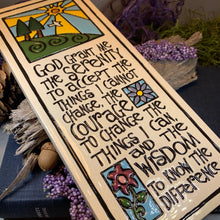 GOD GRANT ME
THE SERENITY
TO ACCEPT THE
THINGS I CANNOT
CHANGE, THE
Courage
TO CHANGE THE
THINGS I CAN,
AND THE
WISDOM
TO KNOW THE
DIFFERENCE